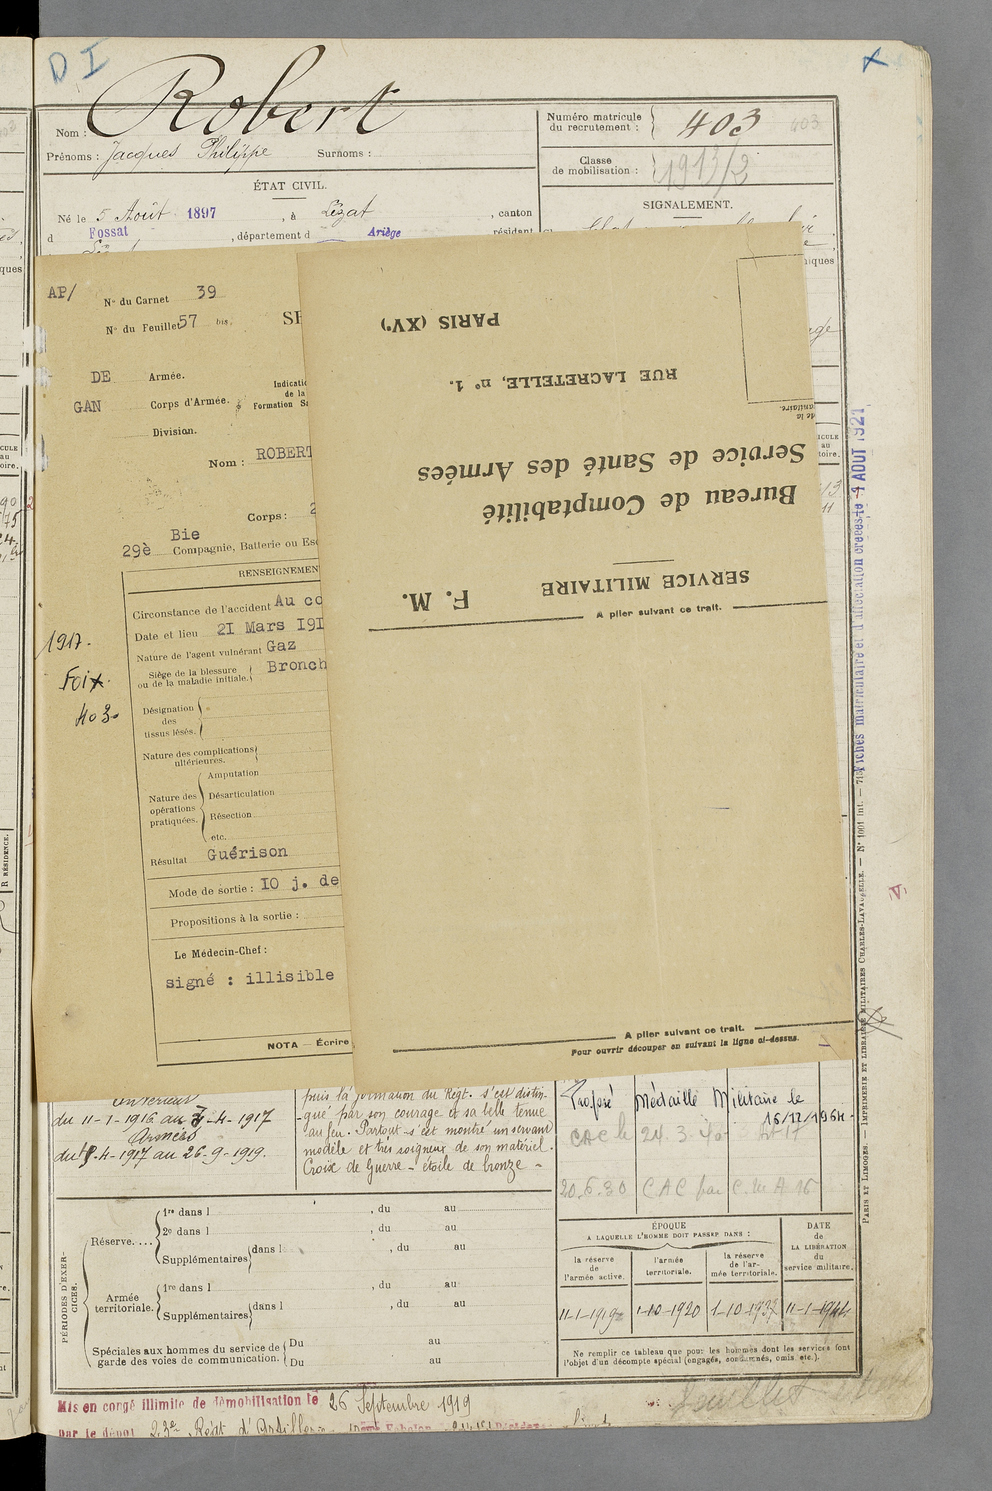 D I
Robert
Nom :
Prénoms : Jacques Philippe Surnoms :
Numéro matricule
du recrutement : 403 403
Classe
de mobilisation : 1913/2
ÉTAT CIVIL.
SIGNALEMENT.
Né le 5 Août 1897, à Lézat, canton
d Fossat, département d Ariège résidant
AP/
N° du Carnet 39
N° du Feuillet 57 bis.
DE Armée.
GAN Corps d'Armée.
Division.
Indicatio
de la
Formation Sa
Nom : ROBERT
Corps : 2
29è Bie Compagnie, Batterie ou Esc
RENSEIGNEMEN
Circonstance de l'accident Au co
Date et lieu 2I Mars I9I
Nature de l'agent vulnérant Gaz
Siège de la blessure
ou de la maladie initiale. Bronch
1917.
Foix.
403.
Désignation
des
tissus lésés.
Nature des complications
ultérieures.
Nature des
opérations
pratiquées.
Amputation
Désarticulation
Résection
etc.
Résultat Guérison
Mode de sortie : IO j. de
Propositions à la sortie :
Le Médecin-Chef :
signé : illisible
NOTA — Écrire
PARIS (XVe)
RUE LACRETELLE, n° 1.
Bureau de Comptabilité
Service de Santé des Armées
SERVICE MILITAIRE
F. M.
A plier suivant ce trait.
A plier suivant ce trait.
Pour ouvrir découper en suivant la ligne ci-dessus.
Fiches matriculaire et d'affectation créées le AOUT 1921
PARIS ET LIMOGES. — IMPRIMERIE ET LIBRAIRIE MILITAIRES CHARLES-LAVAUZELLE. — N° 1001 int. —
R RÉSIDENCE.
intérieur
du 11-1-1916 au 7-4-1917
Armées
du 8-4-1917 au 26-9-1919.
puis la formation du Régt. s'est distin-
-gué par son courage et sa belle tenue
au feu. Partout s'est montré un servant
modèle et très soigneux de son matériel.
Croix de Guerre - étoile de bronze -
Proposé Médaille Militaire le
16/12/196
20.6.30 CAC par
PÉRIODES D'EXER-
CICES.
Réserve....
1re dans l , du au
2e dans l , du au
Supplémentaires dans l , du au
Armée
territoriale.
1re dans l , du au
Supplémentaires dans l , du au
Spéciales aux hommes du service de
garde des voies de communication.
Du au
Du au
ÉPOQUE
A LAQUELLE L'HOMME DOIT PASSER DANS :
DATE
de
LA LIBÉRATION
du
service militaire.
la réserve
de
l'armée active.
l'armée
territoriale.
la réserve
de l'ar-
mée territoriale.
11-1-1919 1-10-1920 1-10-1937 11-1-1944
Ne remplir ce tableau que pour les hommes dont les services font
l'objet d'un décompte spécial (engagés, condamnés, omis etc.).
Mis en congé illimité de démobilisation le 26 Septembre 1919
par le dépôt 23e Régt d'Artillerie